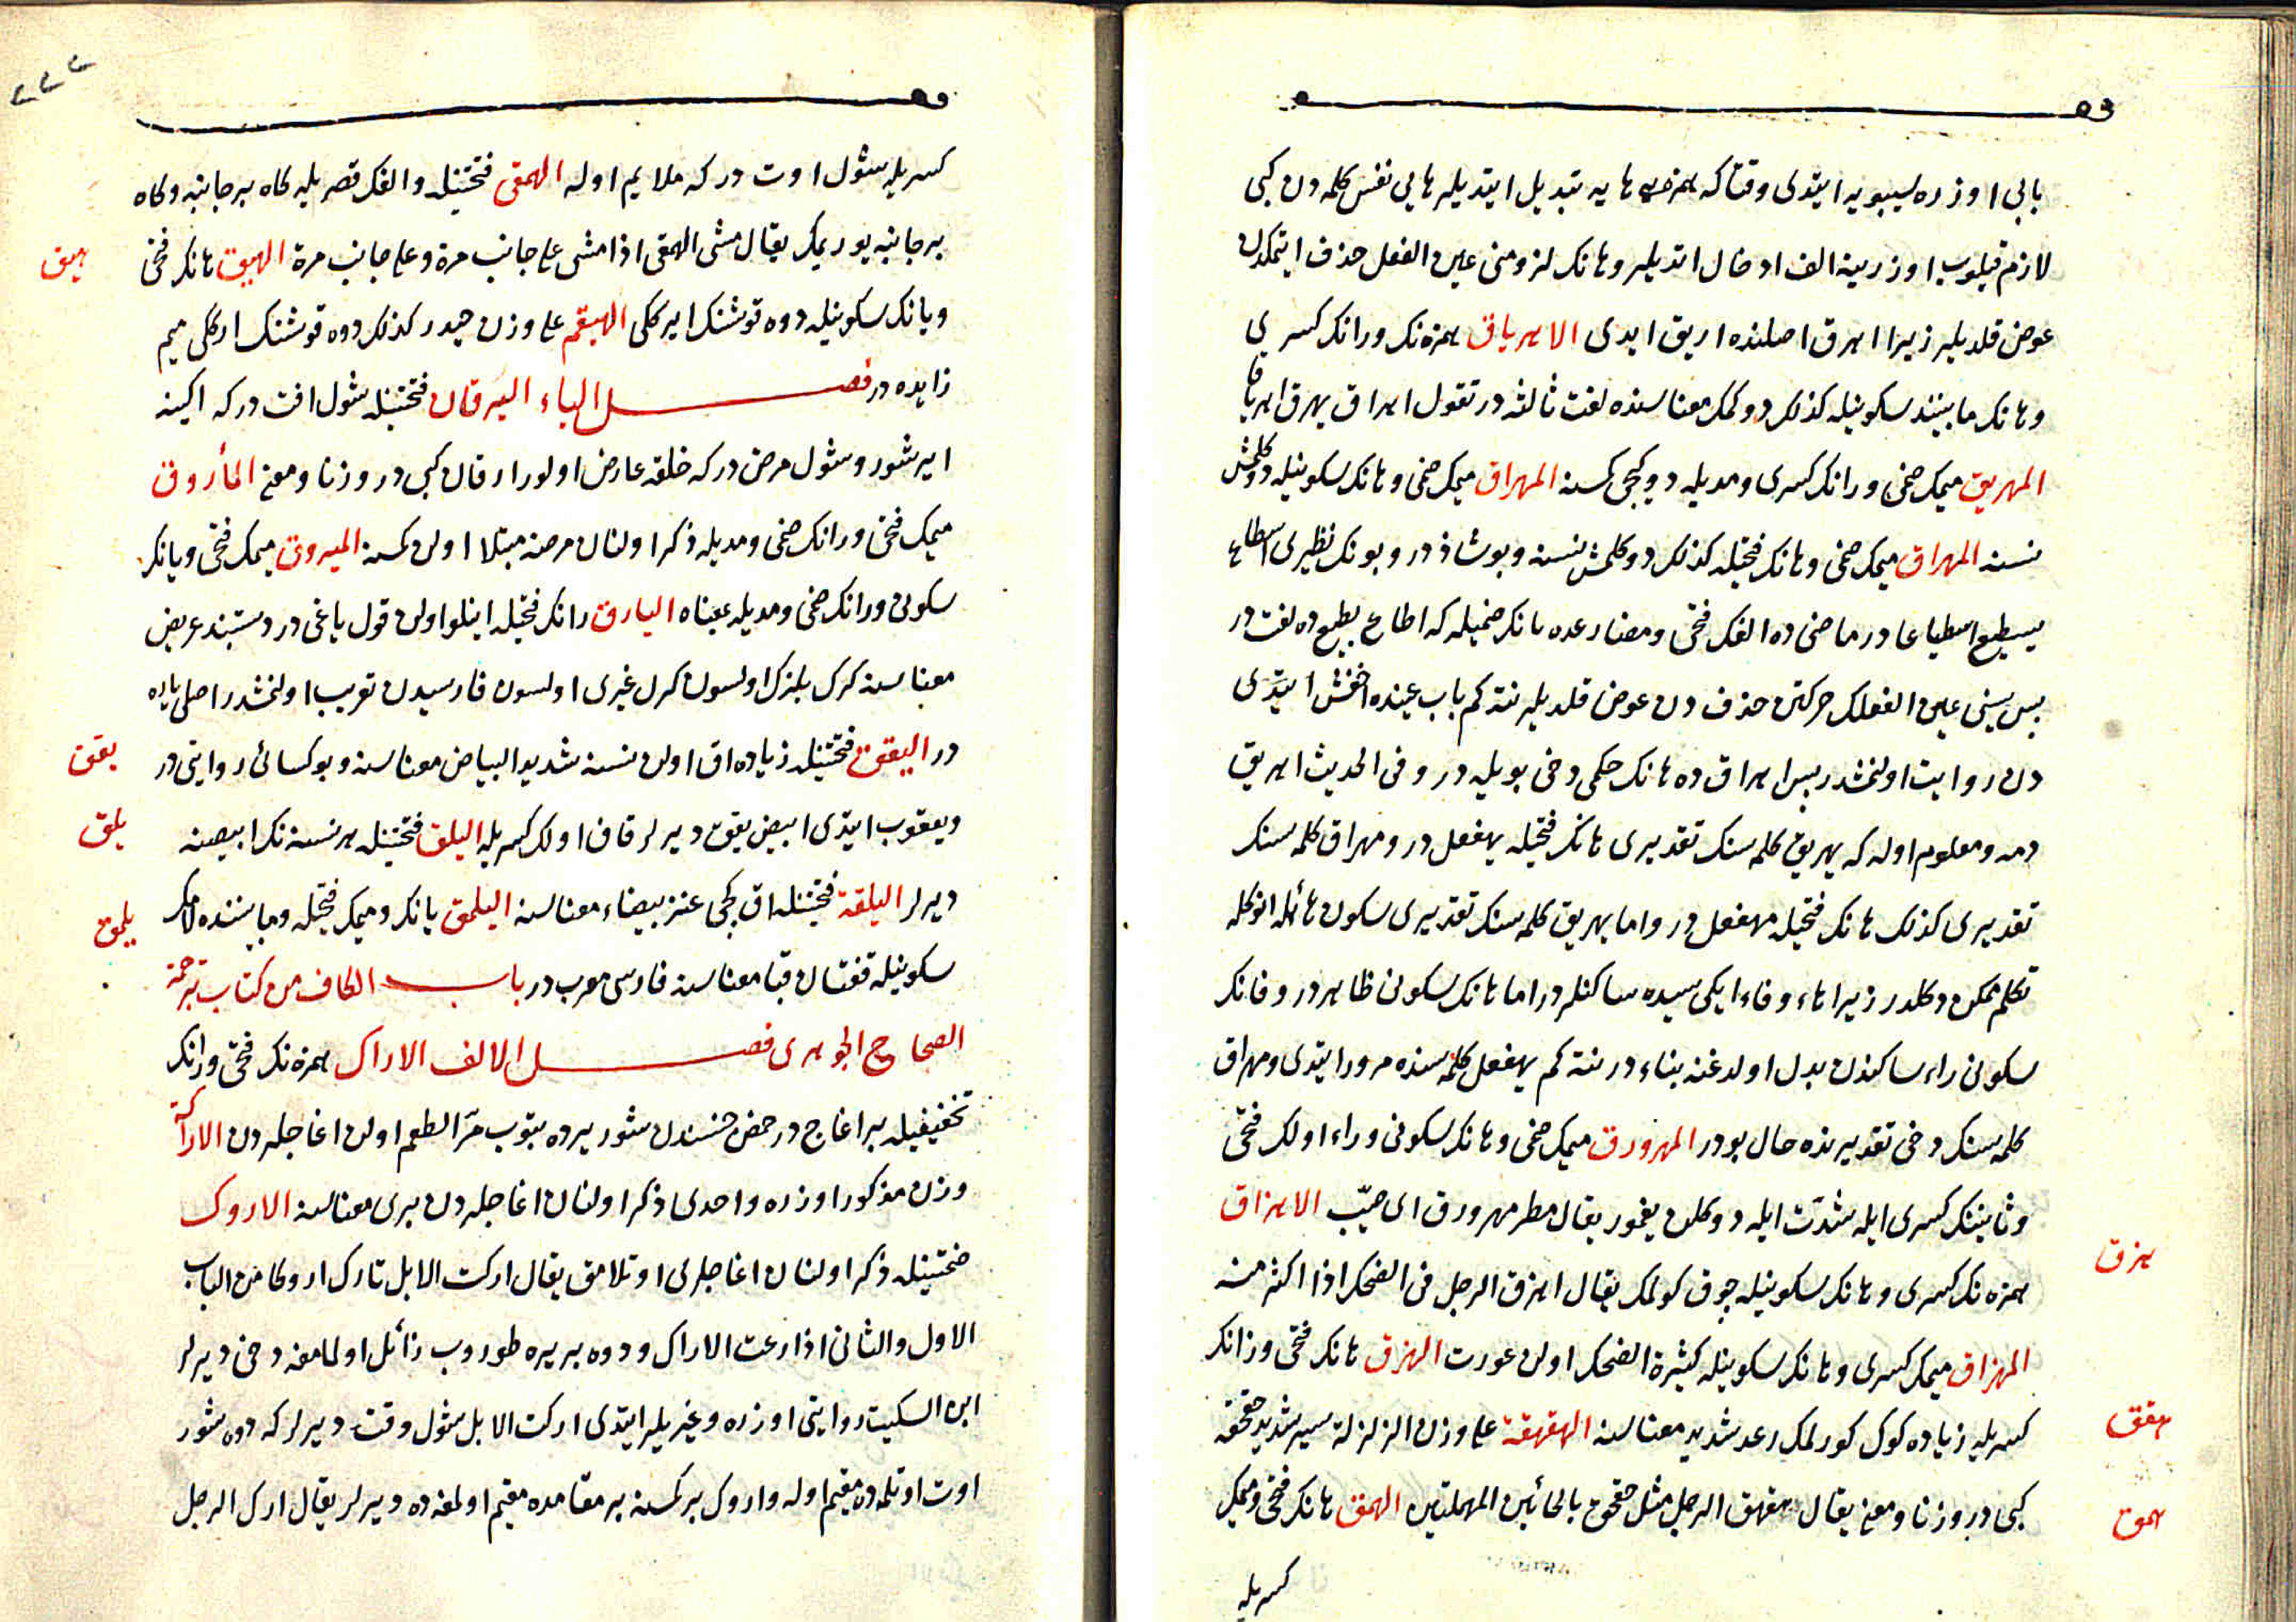 بابی اوزره سیبویه ایتدی وقتاکه همزه‌یی هایه تبدیل ایتدیلر هایی نفس کلمه دن کبی
لازم قیلوب اوزرینه الف ادخال اتدیلر وهانک لزومنی عین الفعل حذف ایتمکدن
عوض قلدیلر زیرا اهرق اصلنده اریق ایدی الاهریاق همزه‌نک ورانک کسری
وهانک مابیننده سکونیله کذلک دوکمک معناسنده لغت ثالثه در تقول اهراق یهرق اهریاقا
المهریق میمک ضمی ورانک کسری ومدیله دوکجی کمسنه المهراق میمک ضمی وهانک سکونیله دوکلمش
نسنه المهراق میمک ضمی وهانک فتحیله کذلک دوکلمش نسنه وبو شاذ در وبونک نظیری اسطاع
یسطیع اسطیاعا در ماضی ده الفک فتحی ومضارعده یانک ضمیله که اطاع یطیع ده لغت در
پس سینی عین الفعلک حرکتن حذف دن عوض قلدیلر نته کم باب عینده اخفش ایتدی
دن روایت اولنمشدر پس اهراق ده هانک حکمی دخی بویله در وفی الحدیث اهریق
دمه ومعلوم اوله که یهریق کلمه سنک تقدیری هانک فتحیله یهفعل در ومهراق کلمه سنک
تقدیری کذلک هانک فتحیله مهفعل در واما یهریق کلمه سنک تقدیری سکون هائله انوکله
تکلم ممکن دکلدر زیرا هاء وفاء ایکیسیده ساکنلردر اما هانک سکونی ظاهردر وفانک
سکونی راء ساکندن بدل اولدغنه بناء در نته کم یهفعل کلمه سنده مرور ایتدی ومهراق
کلمه سنک دخی تقدیرنده حال بودر المهرورق میمک ضمی وهانک سکونی وراء اولک فتحی
وثانینک کسری ایله شدت ایله دوکلن یغمور یقال مطر مهرورق ای صیّب الاهزاق
هزق
همزه‌نک کسری وهانک سکونیله چوق کولمک یقال اهزق الرجل فی الضحک اذا اکثر منه
المهزاق میمک کسری وهانک سکونیله کثیرة الضحک اولن عورت الهزق هانک فتحی وزانک
کسریله زیاده کوک کورلمک رعد شدید معناسنه الهقهقة علی وزن الزلزلة سیر شدید حقحقه
هقق
کبی در وزنا ومعنی یقال هقهق الرجل مثل حقحق بالحائین المهملتین الهمق هانک فتحی ومیمک
همق
کسریله
کسریله شول اوت در که ملایم اوله الهمقی فتحتینله والفک قصریله کاه بر جانبنه وکاه
بر جانبنه یوریمک یقال مشی الهمقی اذا مشی علی جانب مرة وعلی جانب مرة الهیق هانک فتحی
هیق
ویانک سکونیله دوه قوشنک ایرککی الهیقم علی وزن حیدر کذلک دوه قوشنک ارککی میم
زایده در فصل الیاء الیرقان فتحتینله شول افت در که اکینه
ایرشور وشول مرض در که خلقه عارض اولور ارقان کبی در وزنا ومعنی المأروق
میمک فتحی ورانک ضمی ومدیله ذکر اولنان مرضه مبتلا اولن کمسنه المیروق میمک فتحی ویانک
سکونی ورانک ضمی ومدیله بمعناه الیارق رانک فتحیله اینلو اولن قول باغی در دستبند عریض
معناسنه کرک بلزک اولسون کرک غیری اولسون فارسیدن تعریب اولنمشدر اصلی یاره
در الیقق فتحتینله زیاده اق اولن نسنه شدید البیاض معناسنه وبو کسائی روایتی در
یقق
ویعقوب ایتدی ابیض یقق دیرلر قاف اولک کسریله الیلق فتحتینله هر نسنه نک ابیضنه
یلق
دیرلر الیلقة فتحتینله اق کچی عنز بیضاء معناسنه الیلمق یانک ومیمک فتحیله ومابیننده لامک
یلمق
سکونیله قفتان قبا معناسنه فارسی معرب در باب الکاف من کتاب ترجمة
الصحاح الجوهری فصل الالف الاراک همزه‌نک فتحی ورانک
تخفیفیله بر اغاج در حمض جنسندن شور یرده بتوب مرّ الطعم اولن اغاجلردن الاراکة
وزن مذکور اوزره واحدی ذکر اولنان اغاجلردن بری معناسنه الاروک
ضمتینله ذکر اولنان اغاجلری اوتلامق یقال ارکت الابل تارک اروکا من الباب
الاول والثانی اذا رعت الاراک ودوه بر یره طوروب زائل اولمامغه دخی دیرلر
ابن السکیت روایتی اوزره وغیریلر ایتدی ارکت الابل شول وقت دیرلر که دوه شور
اوت اوتلمه‌ده مقیم اوله واروک بر کمسنه بر مقامده مقیم اولمغه ده دیرلر یقال ارک الرجل